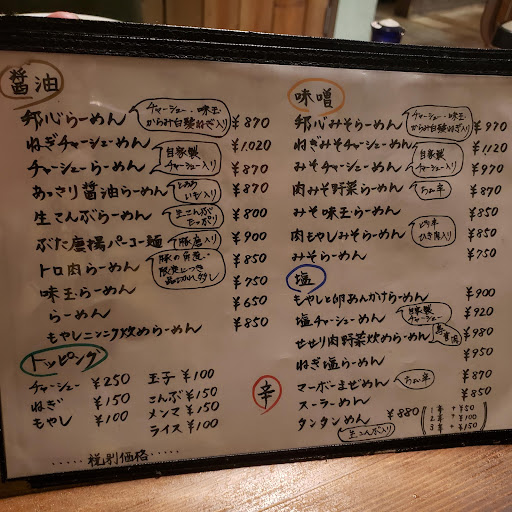 醤油
邪心らーめん チャーシュー・味玉 からみ白髪ねぎ入り ¥870
ねぎチャーシューめん ¥1,020
チャーシューめん 自家製 チャーシュー入り ¥870
あっさり醤油らーめん いも入り ¥870
生こんぶらーめん 生こんぶ たっぷり ¥800
ぶた唐揚パーコー麺 豚唐入り ¥900
トロ肉らーめん ¥850
味玉らーめん ¥750
らーめん ¥650
もやしニンニク炒めらーめん ¥850
トッピング
チャーシュー ¥250
ねぎ ¥150
もやし ¥100
玉子 ¥100
こんぶ ¥150
メンマ ¥150
ライス ¥100
・・・・・税別価格・・・・・
味噌
邪心みそらーめん チャーシュー・味玉 からみ白髪ねぎ入り ¥970
ねぎみそチャーシューめん ¥1,120
みそチャーシューめん 自家製 チャーシュー入り ¥970
肉みそ野菜らーめん ¥870
みそ味玉らーめん ¥850
肉もやしみそらーめん ピリ辛 ひき肉入り ¥850
みそらーめん ¥750
塩
もやしと卵あんかけらーめん ¥900
塩チャーシューめん 自家製 チャーシュー ¥920
せせり肉野菜炒めらーめん ¥980
ねぎ塩らーめん ¥950
辛
マーボーまぜめん ¥870
スーラーめん ¥850
タンタンめん 生こんぶ入り ¥880
1辛 +¥50
2辛 +¥100
3辛 +¥150